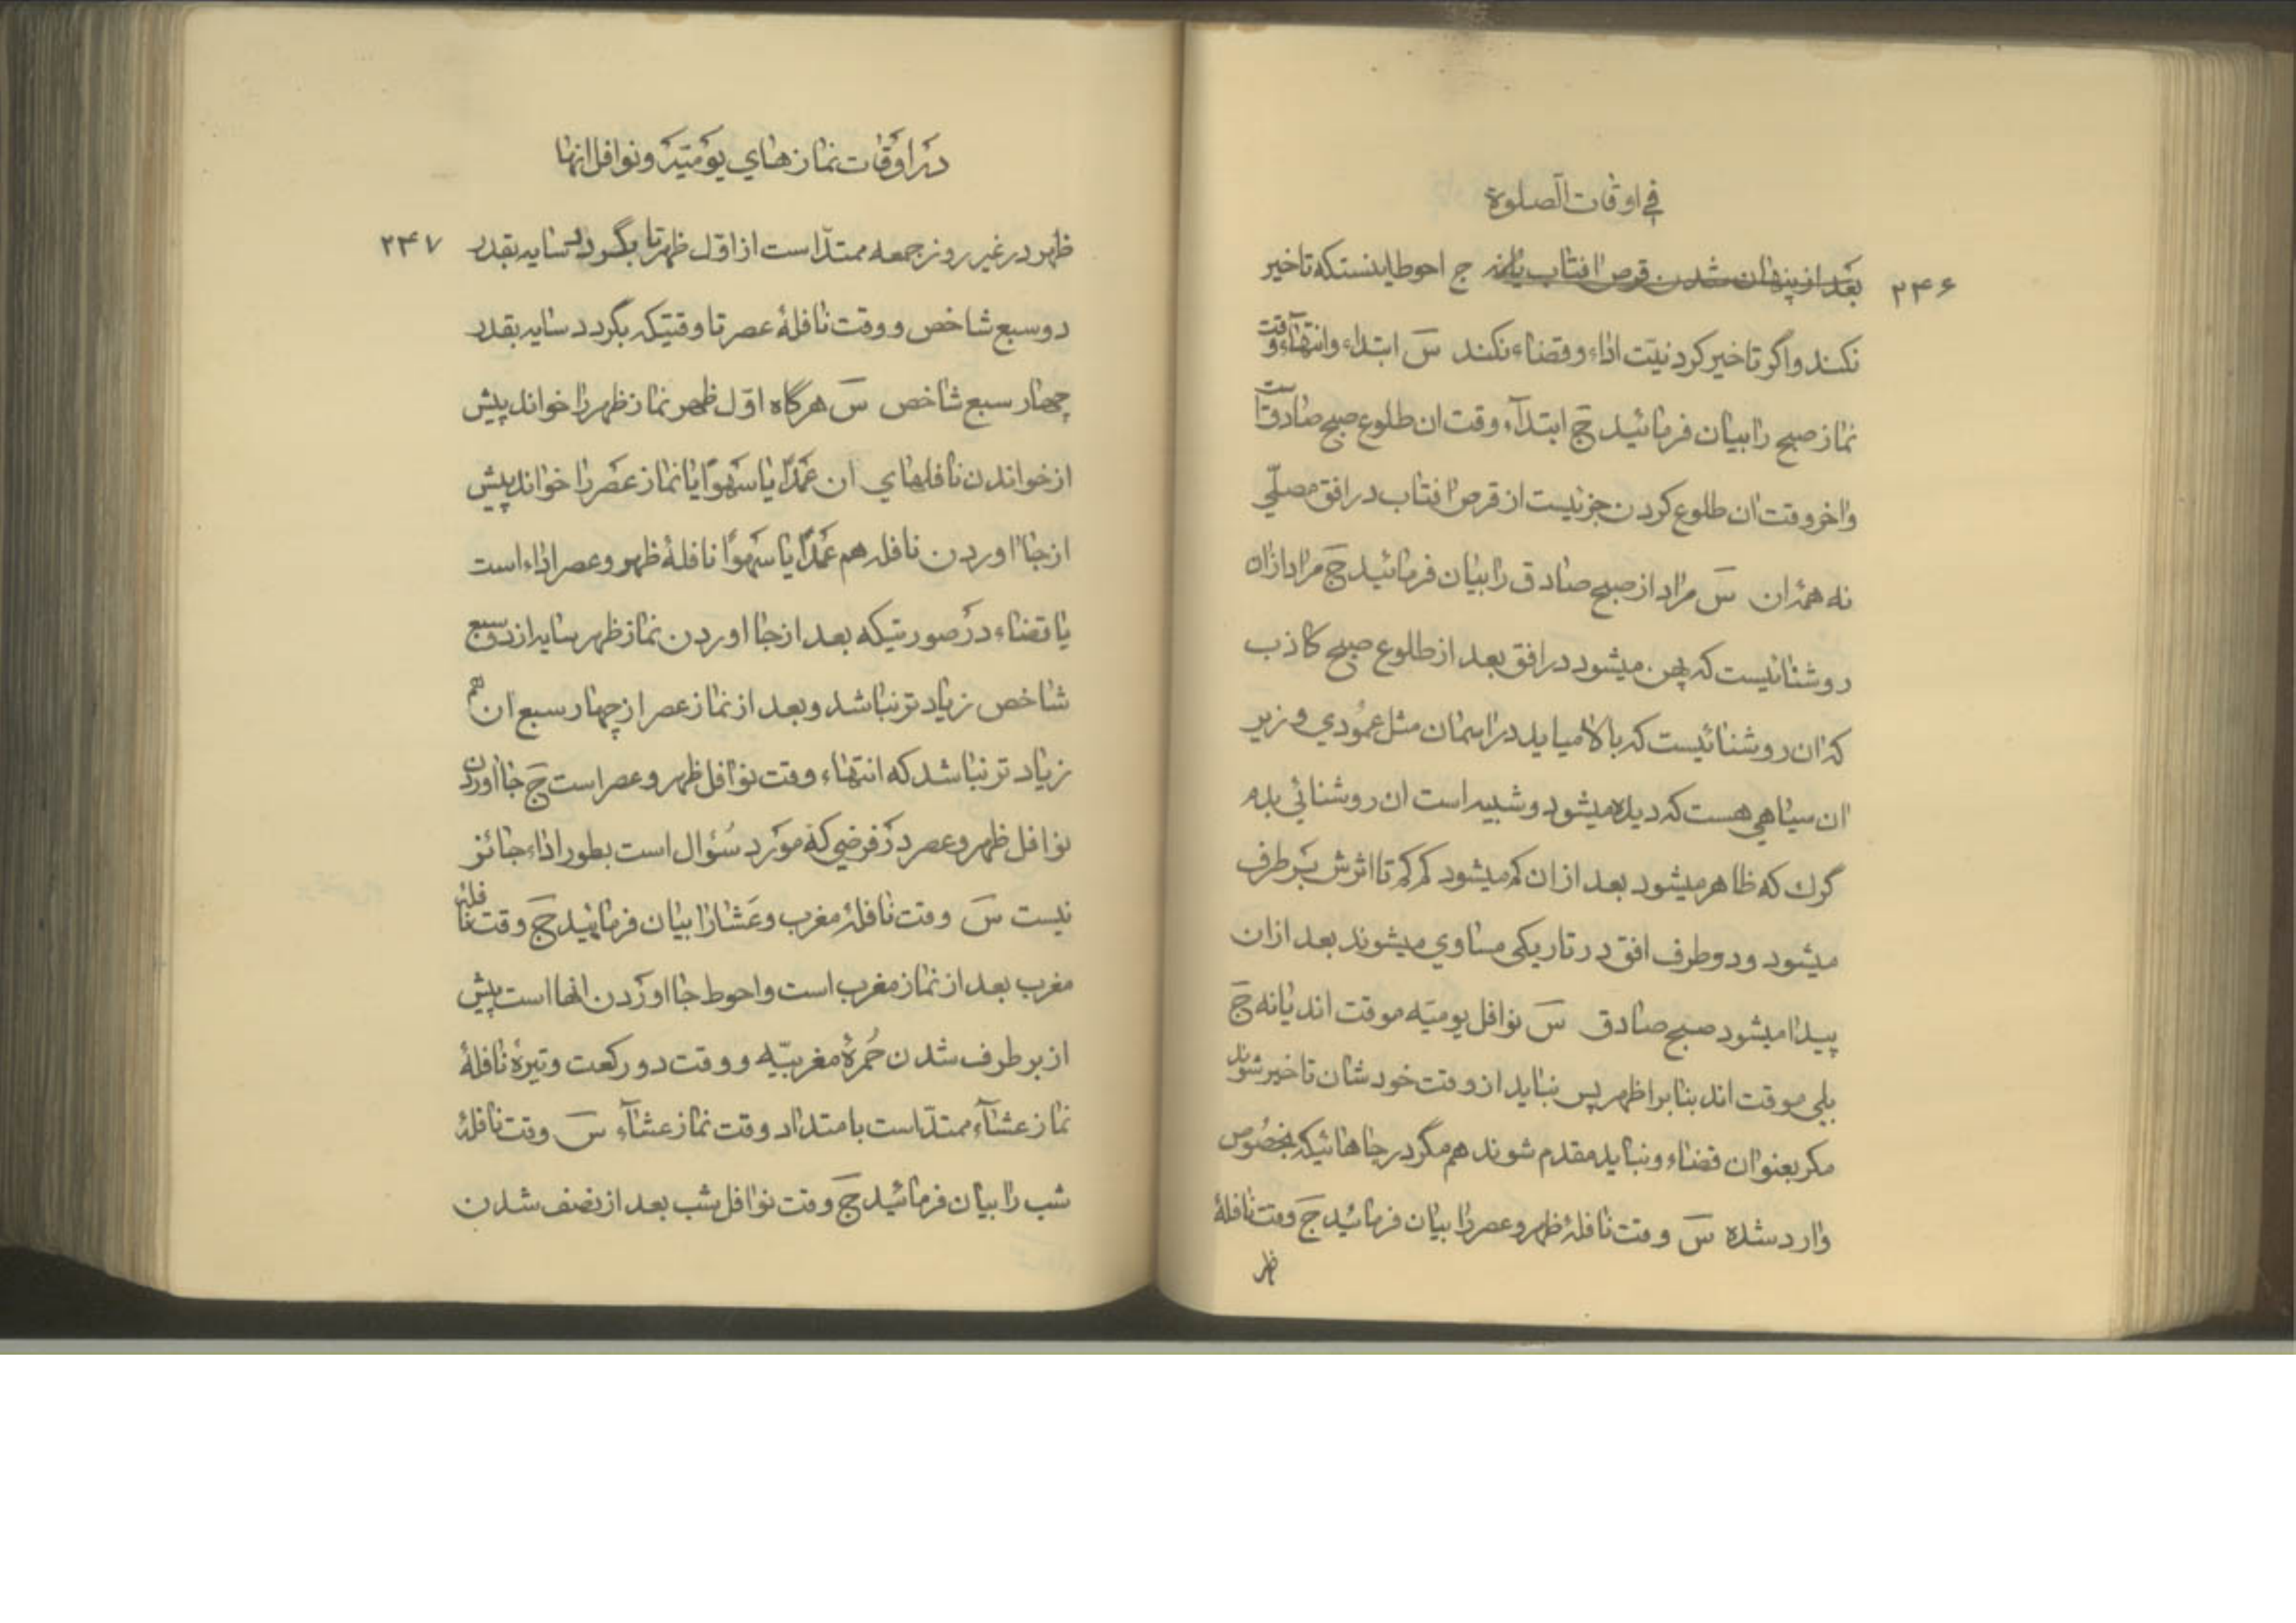 في اوقات الصلوة
۲۴۶
بعد از پنهان شدن قرص افتاب یا نه ج احوط اینستکه تاخیر
نکنند و اگر تاخیر کرد نیت اداء و قضاء نکند س ابتداء و انتهاء وقت
نماز صبح را بیان فرمائید ج ابتداء وقت ان طلوع صبح صادقست
واخر وقت ان طلوع کردن جزئیست از قرص افتاب در افق مصلّی
نه همهٔ ان س مراد از صبح صادق را بیان فرمائید ج مراد ازان
روشنائیست که پهن میشود در افق بعد از طلوع صبح کاذب
که ان روشنائیست که بالا میاید در اسمان مثل عمودي و زیر
ان سیاهي هست که دیده میشود و شبیه است ان روشنائي بدم
گرك که ظاهر میشود بعد از ان کم میشود کم کم تا اثرش بر طرف
میشود و دو طرف افق در تاریکی مساوي میشوند بعد ازان
پیدا میشود صبح صادق س نوافل یومیّه موقت اند یا نه ج
بلی موقت اند بنا بر اظهر پس نباید از وقت خودشان تاخیر شوند
مکر بعنوان قضاء و نباید مقدم شوند هم مگر در جاهائیکه بخصوص
وارد شده س وقت نافلهٔ ظهر و عصر را بیان فرمائید ج وقت نافلهٔ
ظهر
در اوقات نماز هاي یومیّه و نوافل انها
۲۴۷
ظهر در غیر روز جمعه ممتدّ است از اوّل ظهر تا بگردد سایه بقدر
دو سبع شاخص و وقت نافلهٔ عصر تا وقتیکه بگردد سایه بقدر
چهار سبع شاخص س هرگاه اوّل ظهر نماز ظهر را خواند پیش
از خواندن نافلهاي ان عمدًا یا سهوًا یا نماز عصر را خواند پیش
از جا اوردن نافله هم عمدًا یا سهوًا نافلهٔ ظهر و عصر اداء است
یا قضاء در صورتیکه بعد از جا اوردن نماز ظهر سایه از دو سبع
شاخص زیاد تر نباشد و بعد از نماز عصر از چهار سبع ان هم
زیاد تر نباشد که انتهاء وقت نوافل ظهر و عصر است ج جا اوردن
نوافل ظهر و عصر در فرضي که مورد سؤال است بطور اداء جائز
نیست س وقت نافلهٔ مغرب و عشا را بیان فرمائید ج وقت نافله
مغرب بعد از نماز مغرب است و احوط جا اوردن انها است پیش
از بر طرف شدن حمرهٔ مغربیّه و وقت دو رکعت وتیرهٔ نافلهٔ
نماز عشاء ممتدّ است با متداد وقت نماز عشاء س وقت نافلهٔ
شب را بیان فرمائید ج وقت نوافل شب بعد از نصف شدن